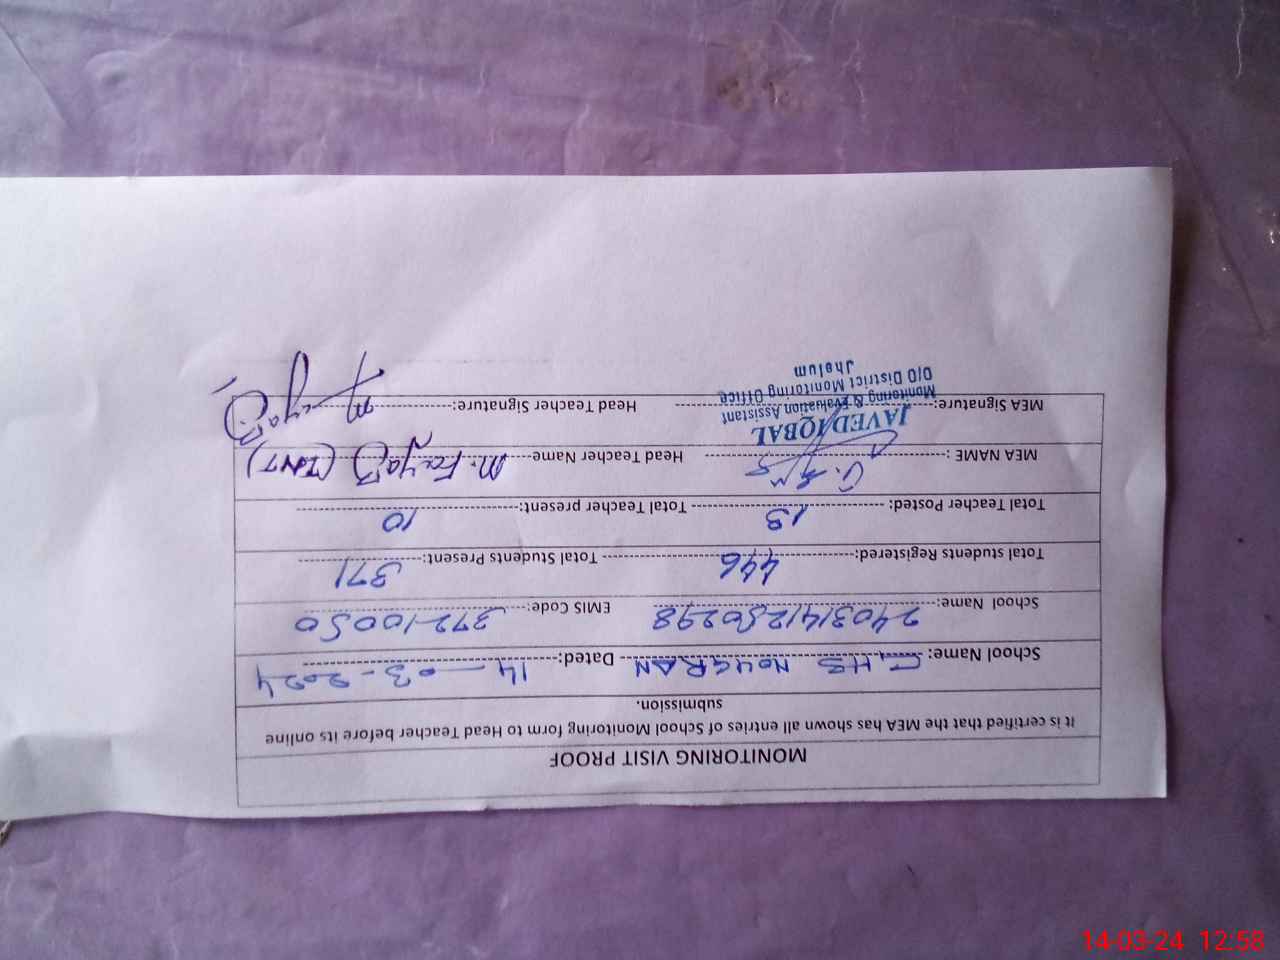 MONITORING VISIT PROOF
It is certified that the MEA has shown all entries of School Monitoring form to Head Teacher before its online
submission.
School Name: GHS NOUGRAN Dated: 14-03-2024
School Name: 2403141280298 EMIS Code: 37210050
Total students Registered: 446 Total Students Present: 371
Total Teacher Posted: 13 Total Teacher present: 10
MEA NAME : Head Teacher Name M. Fayaz
MEA Signature: Head Teacher Signature:
JAVED IQBAL
Monitoring & Evaluation Assistant
O/O District Monitoring Office
Jhelum
14-03-24 12:58